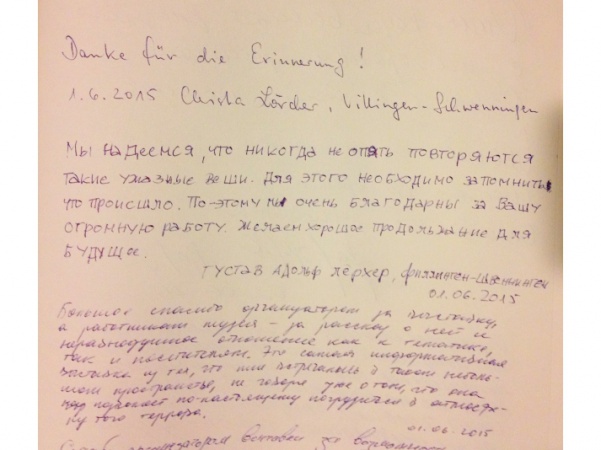 Danke für die Erinnerung!
1.6.2015 Christa Lörcher, Villingen-Schwenningen
Мы надеемся, что никогда не опять повторяются
такие ужазные вещи. Для этого необходимо запомнить
что происшло. По-этому мы очень благодарны за Вашу
огромную работу. Желаем хорошое продольжание для
будущое.
Густав Адольф Лёрхер,
01.06.2015
Большое спасибо организаторам за выставку,
а работникам музея - за рассказ о ней и
неравнодушное отношение как к тематике,
так и посетителям. Это самая информативная
выставка из тех, что мне встречались в таком неболь-
шом пространстве, не говоря уже о том, что она
по-настоящему погрузиться в атмосфе-
ру того террора.
01.06.2015
организаторам выставки за